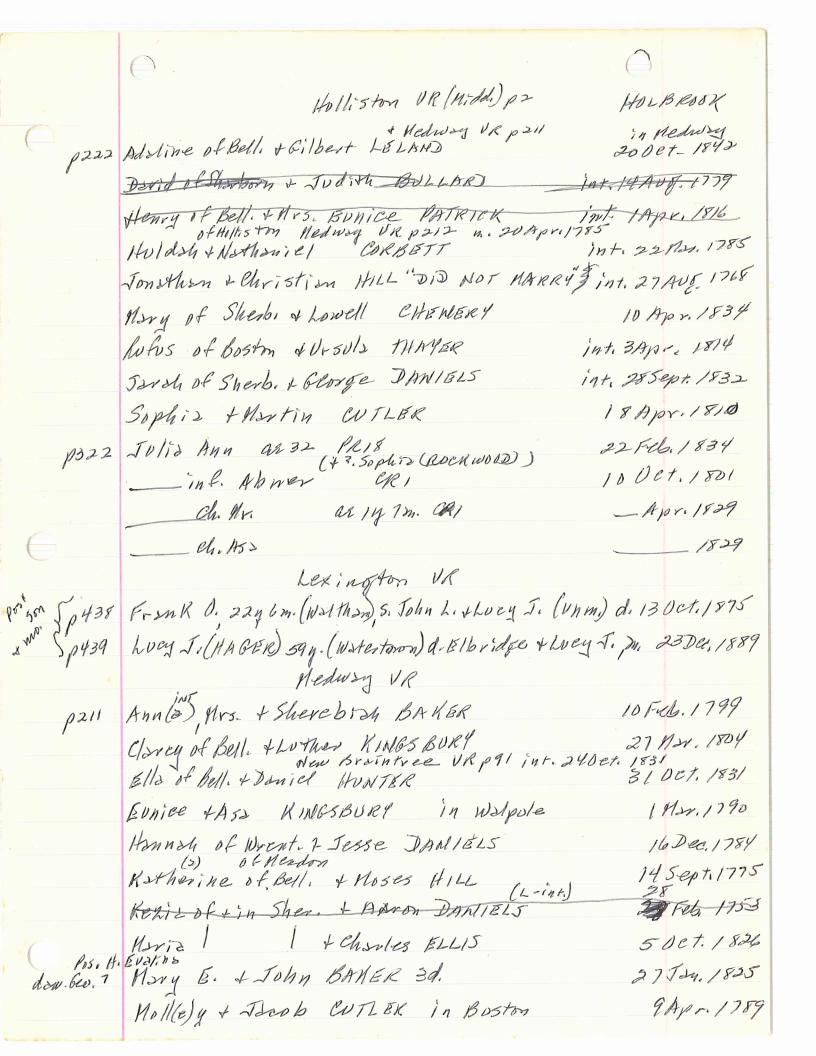 Holliston VR (Midd.) p2 HOLBROOK
+ Medway VR p211 in Medway
p222 Adaline of Bell. + Gilbert LELAND 20 Oct. 1842
David of Sherborn + Judith BULLARD int. 14 Aug. 1779
Henry of Bell. + Mrs. Eunice PATRICK int. 1 Apr. 1816
of Holliston Medway VR p212 m. 20 Apr. 1785
Huldah + Nathaniel CORBETT int. 22 Mar. 1785
Jonathan + Christian HILL "DID NOT MARRY" int. 27 Aug. 1768
Mary of Sherb. + Lowell CHENERY 10 Apr. 1834
Rufus of Boston + Ursula THAYER int. 3 Apr. 1814
Sarah of Sherb. + George DANIELS int. 28 Sept. 1832
Sophia + Martin CUTLER 18 Apr. 1810
p322 Julia Ann ae 32 PR18 22 Feb. 1834
(+ ?. Sophia (ROCKWOOD))
___ inf. Abner CR1 10 Oct. 1801
___ ch. Mr. ae 1y 7m. CR1 — Apr. 1829
___ ch. Asa ___ 1829
Lexington VR
Poss son + mo.
p438 Frank O., 22y 6m. (Waltham), s. John L. + Lucy J. (unm.) d. 13 Oct. 1875
p439 Lucy J. (HAGER) 59y. (Watertown) d. Elbridge + Lucy J. m. 23 Dec. 1889
Medway VR
INT
p211 Ann(a), Mrs. + Sherebiah BAKER 10 Feb. 1799
Clarcy of Bell. + Luther KINGSBURY 27 Mar. 1804
New Braintree VR p91 int. 24 Oct. 1831
Ella of Bell. + Daniel HUNTER 31 Oct. 1831
Eunice + Asa KINGSBURY in Walpole 1 Mar. 1790
Hannah of Wrent. + Jesse DANIELS 16 Dec. 1784
(a) of Mendon
Katherine of Bell. + Moses HILL 14 Sept. 1775
(L-int.) 28
Kezia of + in Sher. + Aaron DANIELS Feb. 1753
Maria | | + Charles ELLIS 5 Oct. 1826
Pos. H. Evalina
dau. Geo. ? Mary E. + John BAKER 3d. 27 Jan. 1825
Moll(e)y + Jacob CUTLER in Boston 9 Apr. 1789